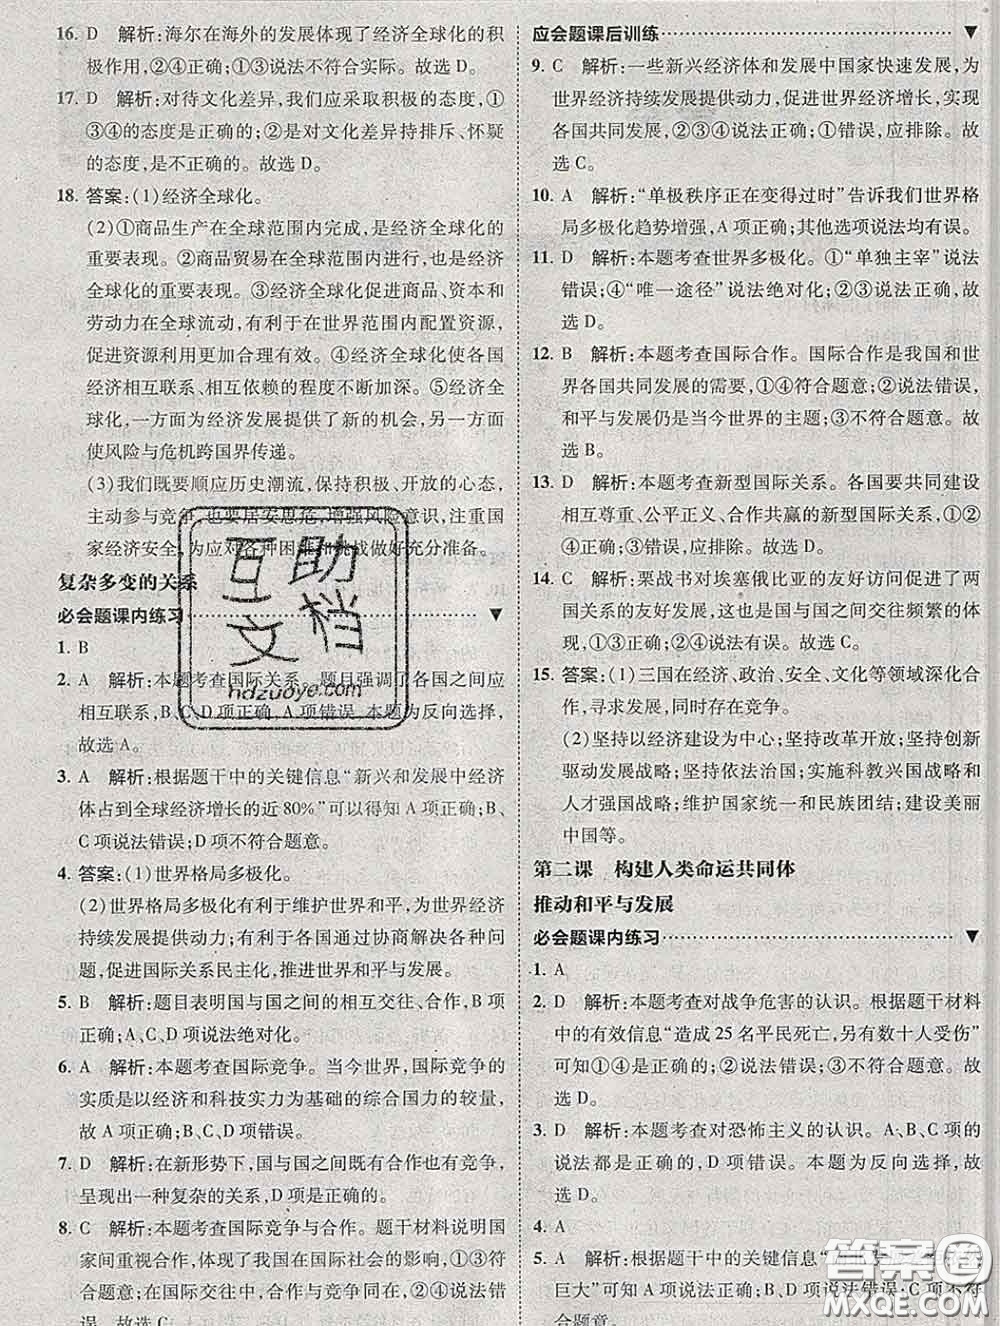 16. D　解析:海尔在海外的发展体现了经济全球化的积
极作用,②④正确;①③说法不符合实际。故选D。
17. D　解析:对待文化差异,我们应采取积极的态度,①
③④的态度是正确的;②是对文化差异持排斥、怀疑
的态度,是不正确的。故选D。
18. 答案:(1)经济全球化。
(2)①商品生产在全球范围内完成,是经济全球化的
重要表现。②商品贸易在全球范围内进行,也是经济
全球化的重要表现。③经济全球化促进商品、资本和
劳动力在全球流动,有利于在世界范围内配置资源,
促进资源利用更加合理有效。④经济全球化使各国
经济相互联系、相互依赖的程度不断加深。⑤经济全
球化,一方面为经济发展提供了新的机会,另一方面
使风险与危机跨国界传递。
(3)我们既要顺应历史潮流,保持积极、开放的心态,
主动参与竞争,也要居安思危,增强风险意识,注重国
家经济安全,为应对各种困难和挑战做好充分准备。
复杂多变的关系
必会题课内练习 ▼
1. B
2. A　解析:本题考查国际关系。题目强调了各国之间应
相互联系,B、C、D项正确,A项错误,本题为反向选择,
故选A。
3. A　解析:根据题干中的关键信息“新兴和发展中经济
体占到全球经济增长的近80%”可以得知A项正确;B、
C项说法错误;D项不符合题意。
4. 答案:(1)世界格局多极化。
(2)世界格局多极化有利于维护世界和平,为世界经济
持续发展提供动力;有利于各国通过协商解决各种问
题,促进国际关系民主化,推进世界和平与发展。
5. B　解析:题目表明国与国之间的相互交往、合作,B项
正确;A、C、D项说法绝对化。
6. A　解析:本题考查国际竞争。当今世界,国际竞争的
实质是以经济和科技实力为基础的综合国力的较量,
故A项正确;B、C、D项错误。
7. D　解析:在新形势下,国与国之间既有合作也有竞争,
呈现出一种复杂的关系,D项是正确的。
8. C　解析:本题考查国际竞争与合作。题干材料说明国
家间重视合作,体现了我国在国际社会的影响,①③符
合题意;②④说法错误。故选C。
应会题课后训练 ▼
9. C　解析:一些新兴经济体和发展中国家快速发展,为
世界经济持续发展提供动力,促进世界经济增长,实现
各国共同发展,②③④说法正确;①错误,应排除。故
选C。
10. A　解析:“单极秩序正在变得过时”告诉我们世界格
局多极化趋势增强,A项正确;其他选项说法均有误。
11. D　解析:本题考查世界多极化。①“单独主宰”说法
错误;④“唯一途径”说法绝对化;②③符合题意。故
选D。
12. B　解析:本题考查国际合作。国际合作是我国和世
界各国共同发展的需要,①④符合题意;②说法错误,
和平与发展仍是当今世界的主题;③不符合题意。故
选B。
13. D　解析:本题考查新型国际关系。各国要共同建设
相互尊重、公平正义、合作共赢的新型国际关系,①②
④正确;③错误,应排除。故选D。
14. C　解析:栗战书对埃塞俄比亚的友好访问促进了两
国关系的友好发展,这是国与国之间交往频繁的体
现,①③正确;②④说法有误。故选C。
15. 答案:(1)三国在经济、政治、安全、文化等领域深化合
作,寻求发展,同时存在竞争。
(2)坚持以经济建设为中心;坚持改革开放;坚持创新
驱动发展战略;坚持依法治国;实施科教兴国战略和
人才强国战略;维护国家统一和民族团结;建设美丽
中国等。
第二课　构建人类命运共同体
推动和平与发展
必会题课内练习 ▼
1. A
2. D　解析:本题考查对战争危害的认识。根据题干材料
中的有效信息“造成25名平民死亡,另有数十人受伤”
可知①④是正确的;②说法错误;③不符合题意。故
选D。
3. D　解析:本题考查对恐怖主义的认识。A、B、C三项的
说法都是正确的,D项错误。本题为反向选择,故
选D。
4. A
5. A　解析:根据题干中的关键信息“
巨大”可知A项正确;B、C项说法错误;D项不符
合题意。
互助
文档
hdzuoye.com
答案圈
MXQE.COM